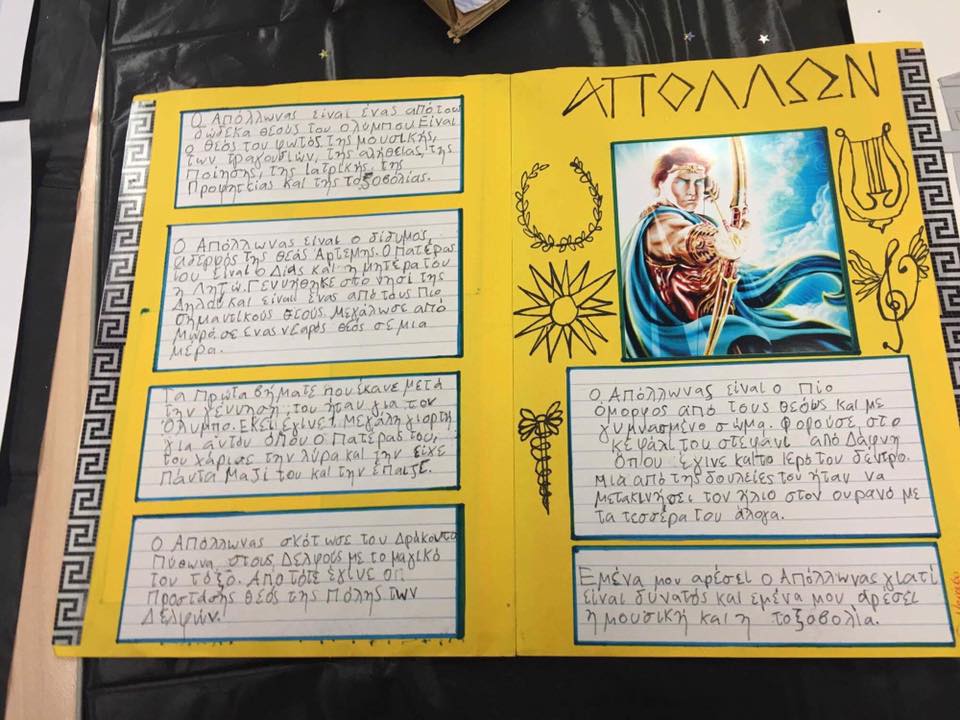 Ο Απόλλωνας είναι ένας από τους
δώδεκα θεούς του ολύμπου. Είναι
ο θεός του φωτός της μουσικής,
των τραγουδιών, της αλήθειας, της
Ποίησης, της Ιατρικής, της
Προφητείας και της τοξοβολίας.
Ο Απόλλωνας είναι ο δίδυμος,
αδερφός της θεάς Άρτεμης. Ο Πατέρας
του είναι ο Δίας και η μητέρα του
η Λητώ. Γεννήθηκε στο νησί της
Δήλου και είναι ένας από τους Πιο
σημαντικούς θεούς. Μεγάλωσε από
μωρό σε ένας νεαρός θεός σε μια
μέρα.
Τα Πρώτα βήματε που έκανε μετά
την γέννηση του ήταν για τον
Όλυμπο. Εκεί έγινε Μεγάλη γιορτή
για αυτόν όπου ο Πατέρας του,
του χάρισε την λύρα και την είχε
Πάντα Μαζί του και την έπαιζε.
Ο Απόλλωνας σκότωσε τον Δράκοντα
Πύθωνα στους Δελφούς με το μαγικό
του τόξο. Από τότε έγινε οπ
Προστάσης θεός της Πόλης των
Δελφών.
ΑΠΟΛΛΩΝ
Ο Απόλλωνας είναι ο Πιο
όμορφος από τους θεούς και με
γυμνασμένο σώμα. Φορούσε στο
κεφάλι του στεφάνι από Δάφνη
όπου έγινε και το Ιερό του δέντρο.
μια από της δουλείες του ήταν να
μετακινήσει τον ήλιο στον ουρανό με
τα τεσσέρα του άλογα.
Εμένα μου αρέσει ο Απόλλωνας γιατί
είναι δυνατός και εμένα μου αρέσει
η μουσική και η τοξοβολία.